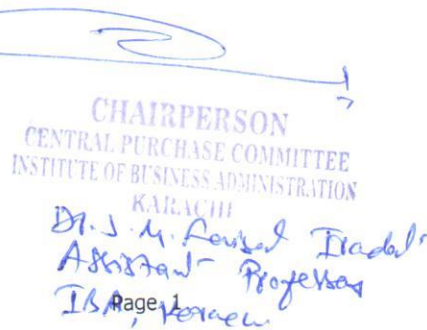 CHAIRPERSON
CENTRAL PURCHASE COMMITTEE
INSTITUTE OF BUSINESS ADMINISTRATION
KARACHI
Dr. S. M. Faisal
Assistant Professor
IBA,
Page 1